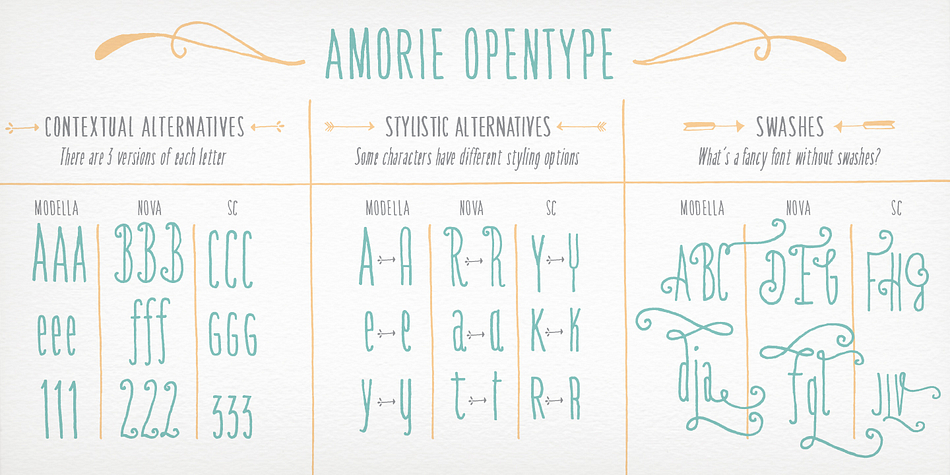 AMORIE OPENTYPE
CONTEXTUAL ALTERNATIVES
There are 3 versions of each letter
MODELLA NOVA SC
AAA BBB CCC
eee fff GGG
111 222 333
STYLISTIC ALTERNATIVES
Some characters have different styling options
MODELLA NOVA SC
A A R R Y Y
e e a a K K
y y t t R R
SWASHES
What's a fancy font without swashes?
MODELLA NOVA SC
ABC DEG FHG
dja fgl JLV